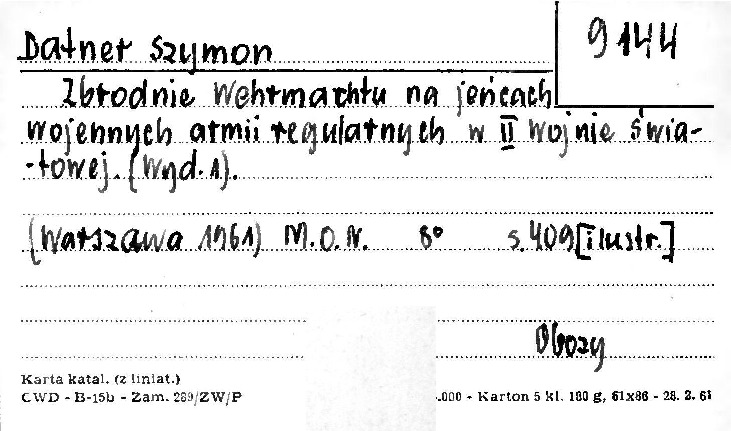 9144
Datner Szymon
Zbrodnie Wehrmachtu na jeńcach
wojennych armii regularnych w II wojnie świa-
-towej. (Wyd. 1).
(Warszawa 1961) M.O.N. 8° s. 409 [ilustr.]
Obozy
Karta katal. (z liniat.)
CWD - B-15b - Zam. 289/ZW/P .000 - Karton 5 kl. 180 g, 61x86 - 28. 2. 61